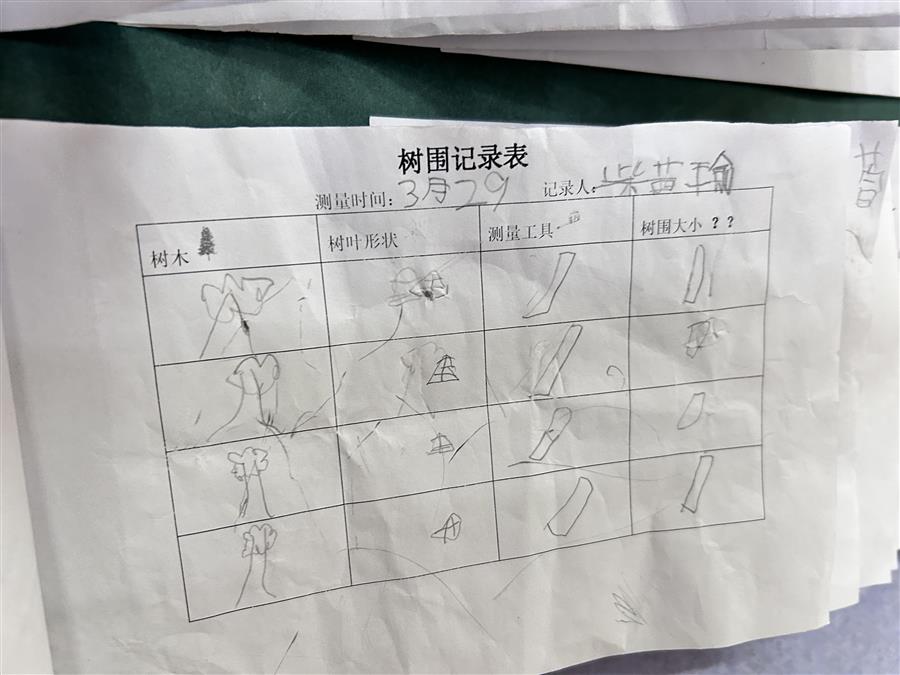 树围记录表
测量时间：3月29 记录人：柴茁瑜
树木 树叶形状 测量工具 树围大小 ？？